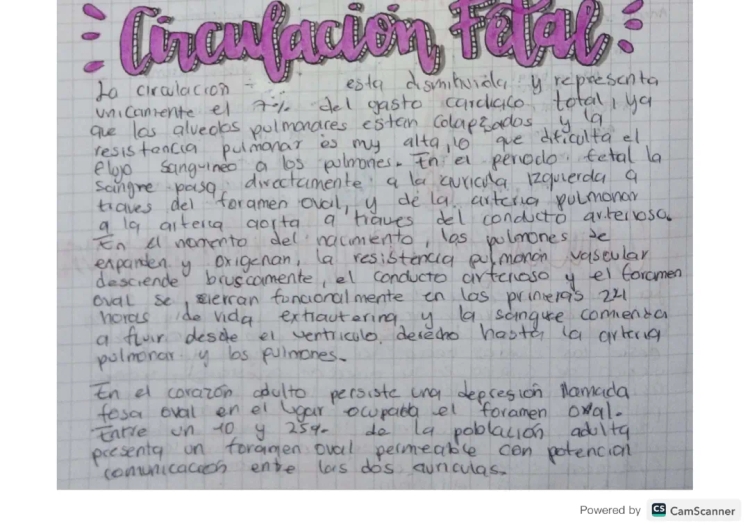 Circulación Fetal
La circulación - esta disminuida y representa
unicamente el 7% del gasto cardiaco total, ya
que los alveolos pulmonares estan colapsados y la
resistencia pulmonar es muy alta, lo que dificulta el
flujo sanguineo a los pulmones. En el periodo fetal la
sangre pasa directamente a la auricula izquierda a
traves del foramen oval, y de la arteria pulmonar
a la arteria aorta a traves del conducto arterioso.
En el momento del nacimiento, los pulmones se
expanden y oxigenan, la resistencia pulmonar vascular
desciende bruscamente, el conducto arterioso y el foramen
oval se cierran funcionalmente en las primeras
horas de vida extrauterina y la sangre comienza
a fluir desde el ventriculo derecho hasta la arteria
pulmonar y los pulmones.
En el corazón adulto persiste una depresion llamada
fosa oval en el lugar ocupaba el foramen oval.
Entre un 10 y 25% de la población adulta
presenta un foramen oval permeable con potencion
comunicacion entre las dos auriculas.
Powered by CS CamScanner